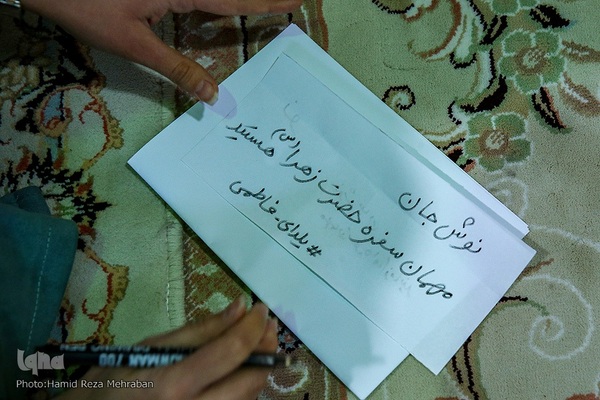 نوش جان
مهمان سفره حضرت زهرا (س) هستید
#یلدای_فاطمی
IQNA
Photo:Hamid Reza Mehraban